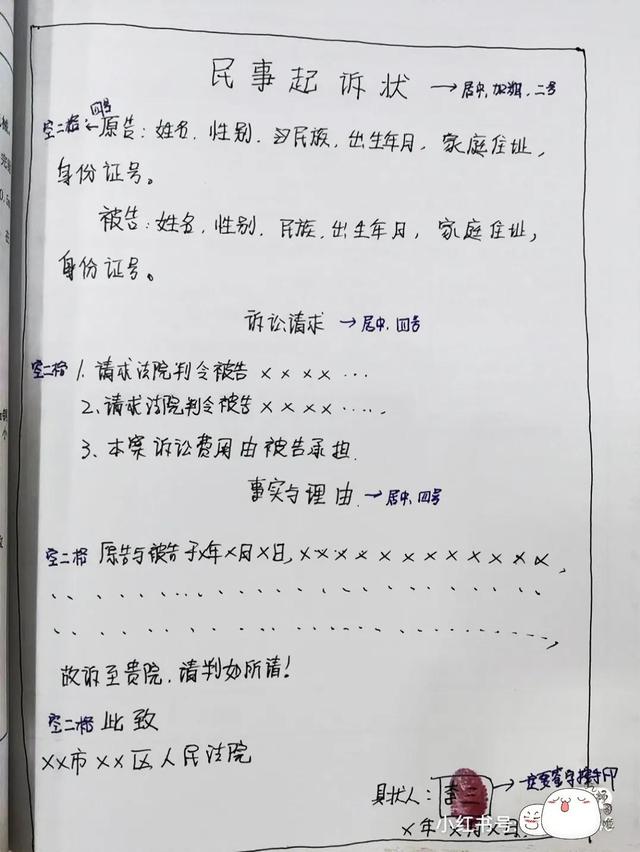 民事起诉状 → 居中,加粗,二号
四号
空二格←原告:姓名,性别,民族,出生年月,家庭住址,
身份证号。
被告:姓名,性别,民族,出生年月,家庭住址,
身份证号。
诉讼请求 → 居中,四号
空二格 1.请求法院判令被告××××…
2、请求法院判令被告××××…..
3、本案诉讼费用由被告承担.
事实与理由. → 居中,四号
空二格 原告与被告于×年×月×日,×××××××××××××,
故诉至贵院,请判如所请!
空二格 此致
××市××区人民法院
具状人:李三 → 一定要签字按手印
×年×月×日
小红书号